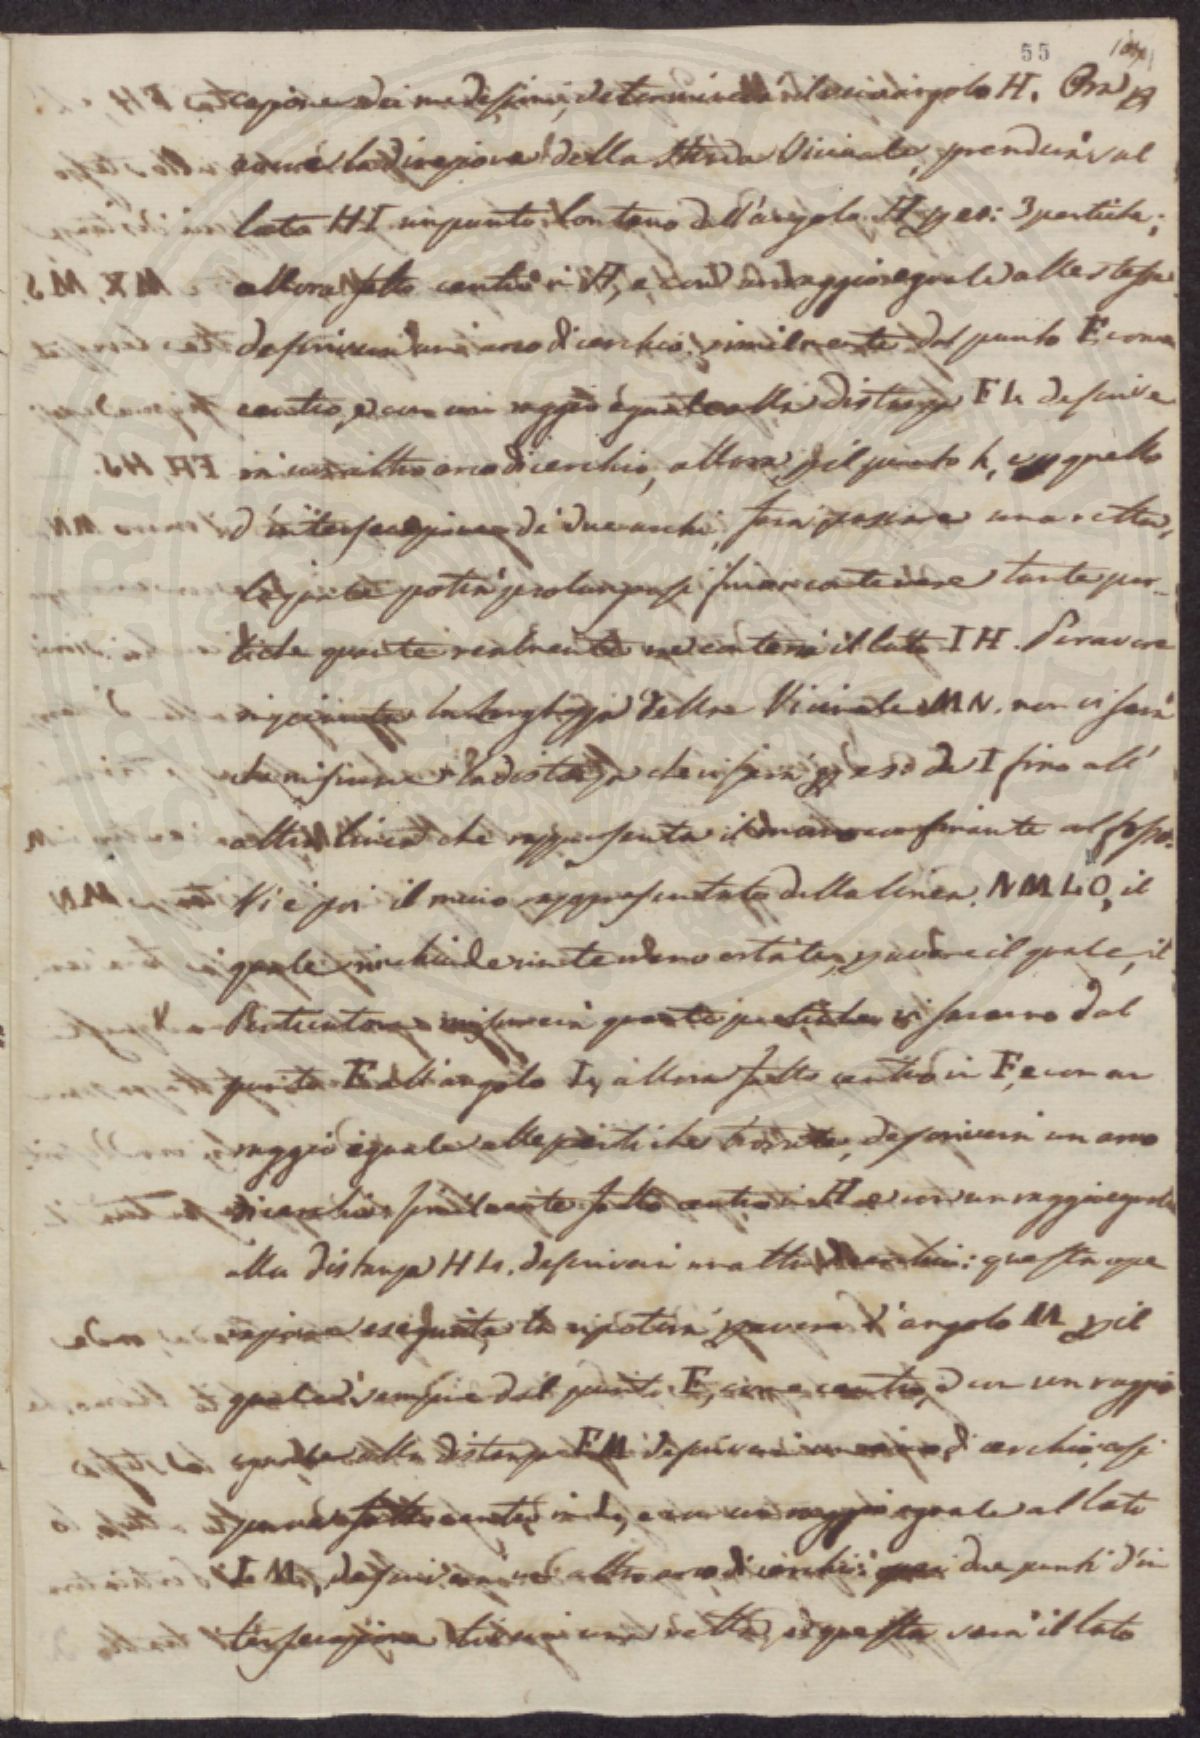 55
cazione dei medesimi, determinerà il suo angolo H. Ora p
avere la direzione della strada Vicinale, prenderà sul
lato HI un punto lontano dall'angolo H p es: 3 pertiche;
allora fatto centro in H, e con un raggio eguale alle stesse
descriverà un arco di cerchio, similmente dal punto F come
centro, e con un raggio eguale alla distanza F h descrive
rà un altro arco di cerchio, allora p il punto h, e p quello
d'intersezione di due archi, farà passare una retta,
la quale potrà prolungarsi fino a contenere tante per-
tiche quante realmente ne conterrà il lato IH. Per avere
la larghezza della Vicinale MN. non vi sarà
che misurare la distanza che vi sarà p es da I fino all'
altra linea che rappresenta il muro confinante al fosso.
Vi è poi il muro rappresentato dalla linea NMLO, il
quale rinchiude p avere il quale, il
Perticatore misurerà quante pertiche vi saranno dal
punto F all'angolo L, allora fatto centro in F, e con un
raggio eguale alle pertiche trovate, descriverà un arco
di cerchio, similmente fatto centro in H e con un raggio eguale
alla distanza HL. descriverà un altro di cerchio: questa ope
razione eseguita, la ripeterà p avere l'angolo M p il
quale sempre dal punto F, come centro, e con un raggio
eguale alla distanza FM descriverà un arco di cerchio, così
pure fatto centro in L, e con un raggio eguale al lato
LM, descriverà un altro arco di cerchio: pei due punti d'in
tersecazione tirerà una retta, e questa sarà il lato